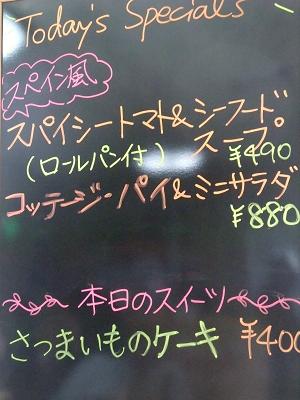 Today's Specials
スペイン風
スパイシートマト&シーフード
スープ。
(ロールパン付) ¥490
コッテージ・パイ&ミニサラダ
¥880
本日のスイーツ
さつまいものケーキ ¥400